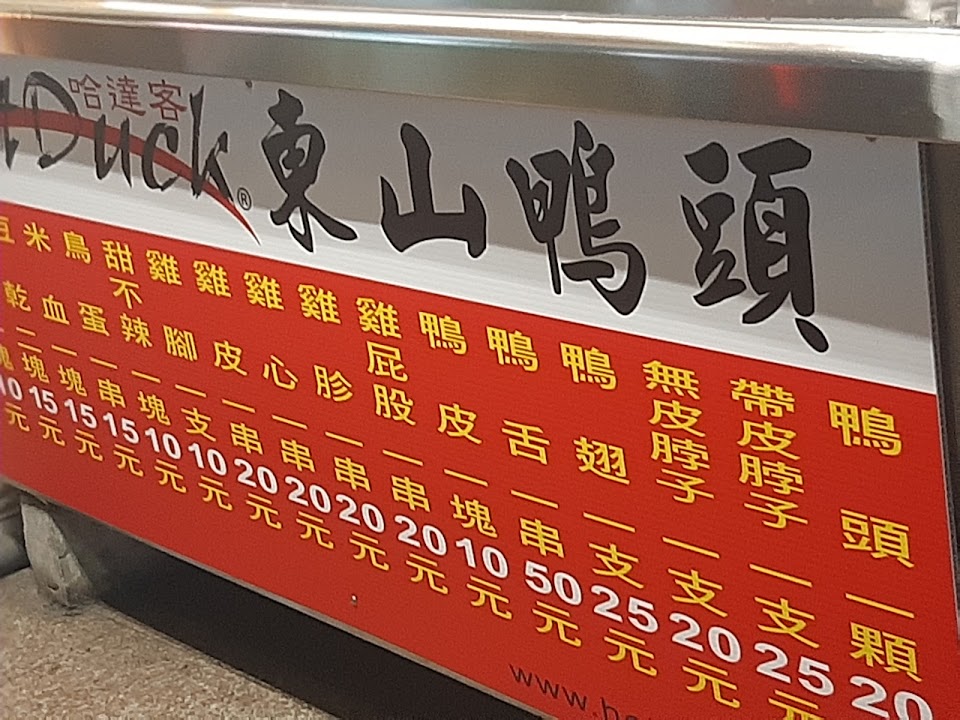 哈達客
Duck®
東山鴨頭
鴨頭一顆20
帶皮脖子一支25元
無皮脖子一支20元
鴨翅一支25元
鴨舌一串50元
鴨皮一塊10元
雞屁股一串20元
雞胗一串20元
雞心一串20元
雞皮一串20元
雞腳一支10元
甜不辣一塊10元
鳥蛋一串15元
米血一塊15元
豆乾一塊15元
10元
www.